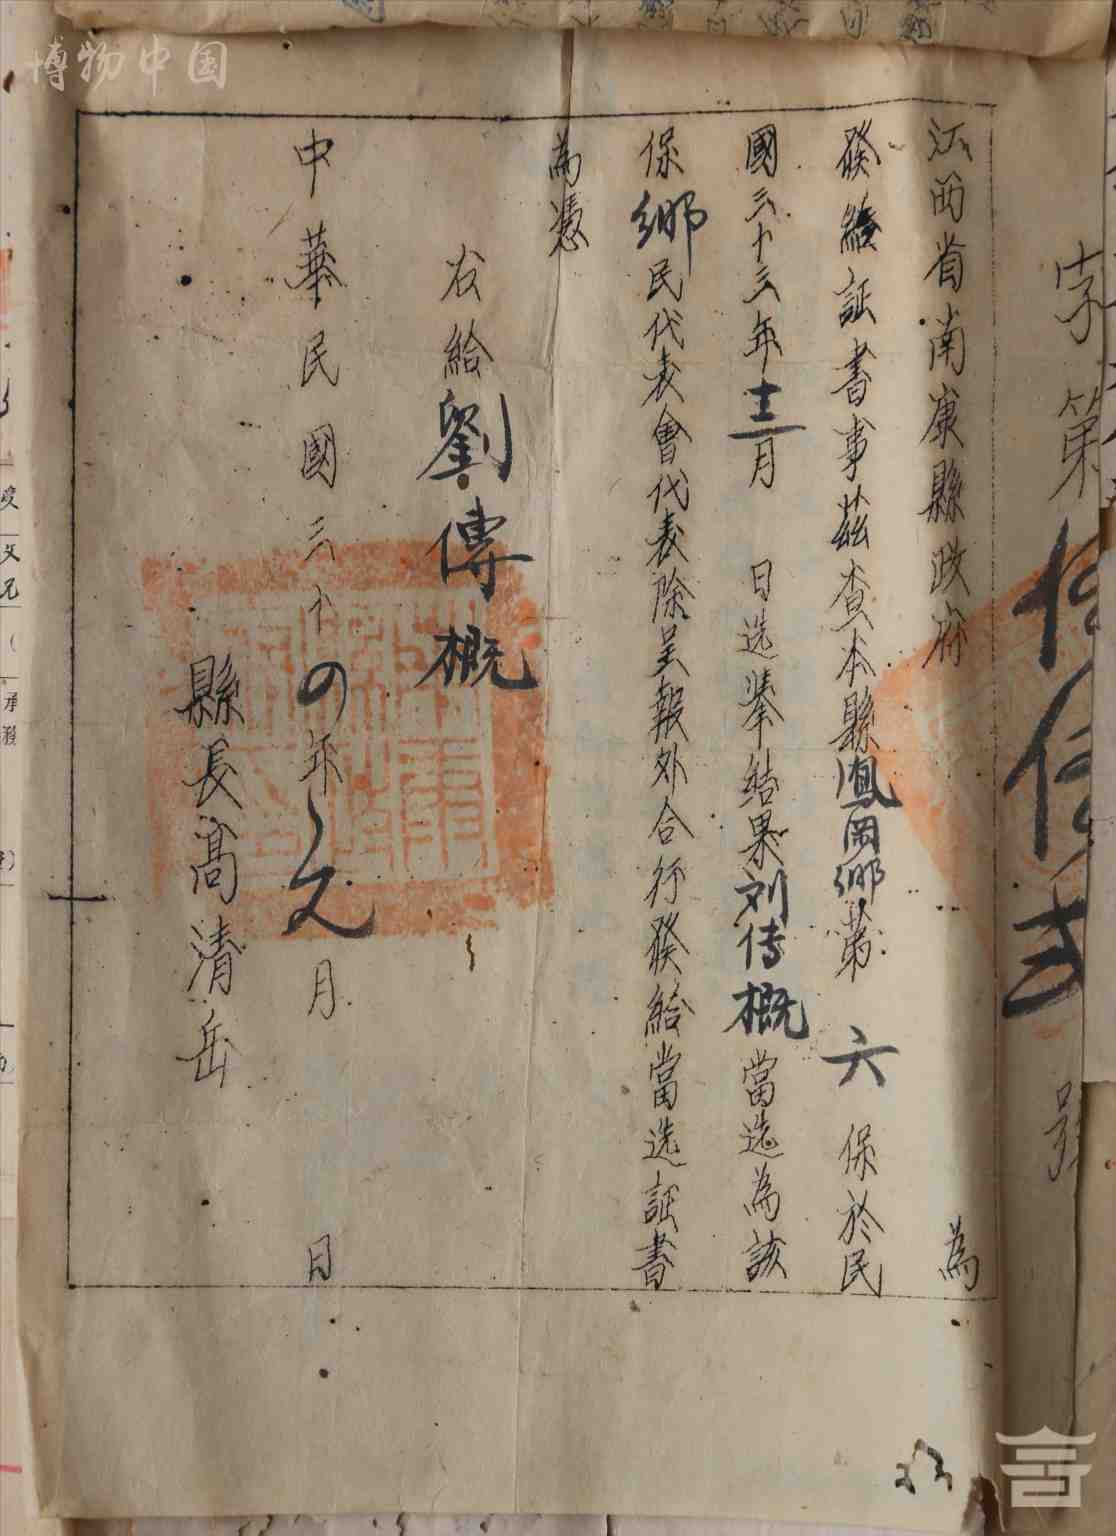 博物中国
字第 號
江西省南康縣政府 為
發給証書事茲查本縣鳳岡鄉第六保於民
國三十三年十二月 日选舉結果刘传概當选為該
保鄉民代表會代表除呈報外合行發給當选証書
為憑
右給劉傳概
中華民國三十四年元月 日
縣長高清岳